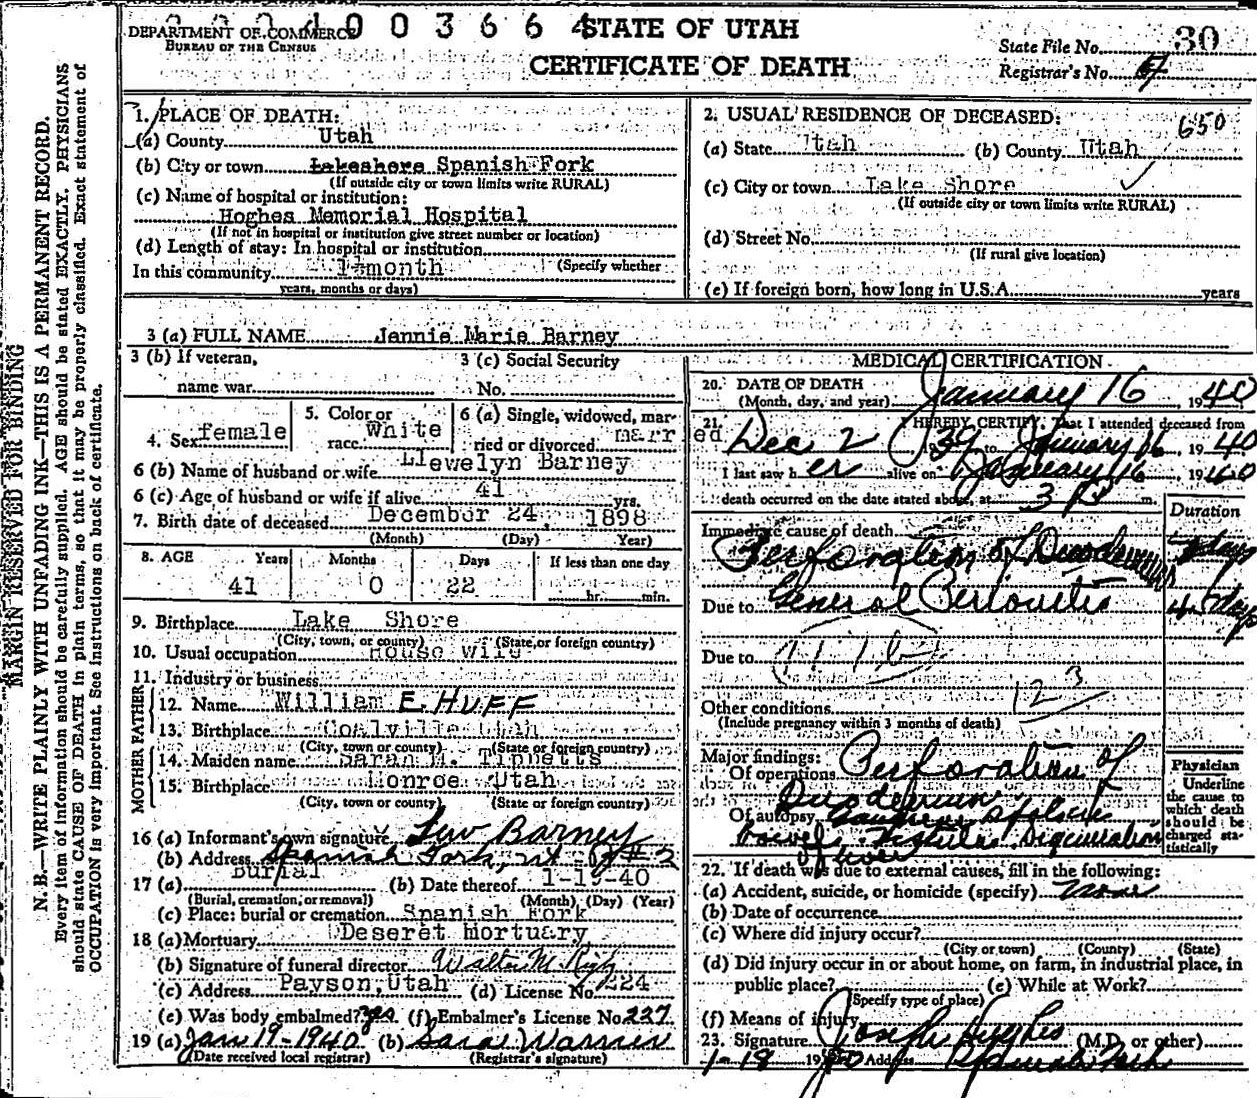 DEPARTMENT OF COMMERCE
BUREAU OF THE CENSUS
0 0 3 6 6 4
STATE OF UTAH
CERTIFICATE OF DEATH
State File No. 30
Registrar's No.
MARGIN RESERVED FOR BINDING
N. B.—WRITE PLAINLY WITH UNFADING INK—THIS IS A PERMANENT RECORD.
Every item of information should be carefully supplied. AGE should be stated EXACTLY. PHYSICIANS
should state CAUSE OF DEATH in plain terms, so that it may be properly classified. Exact statement of
OCCUPATION is very important. See instructions on back of certificate.
1. PLACE OF DEATH:
(a) County Utah
(b) City or town Lakeshore Spanish Fork
(If outside city or town limits write RURAL)
(c) Name of hospital or institution:
Hoghes Memorial Hospital
(If not in hospital or institution give street number or location)
(d) Length of stay: In hospital or institution
In this community month (Specify whether
years, months or days)
2. USUAL RESIDENCE OF DECEASED:
650
(a) State Utah (b) County Utah
(c) City or town Lake Shore
(If outside city or town limits write RURAL)
(d) Street No.
(If rural give location)
(e) If foreign born, how long in U.S.A. years
3 (a) FULL NAME Jennie Marie Barney
3 (b) If veteran, 3 (c) Social Security
name war No.
4. Sex female
5. Color or race White
6 (a) Single, widowed, married or divorced married
6 (b) Name of husband or wife Llewelyn Barney
6 (c) Age of husband or wife if alive 41 yrs.
7. Birth date of deceased December 24, 1898
(Month) (Day) Year)
8. AGE Years Months Days If less than one day
41 0 22 hr. min.
9. Birthplace Lake Shore
(City, town, or county) (State or foreign country)
10. Usual occupation House wife
11. Industry or business
FATHER
12. Name William E. HUFF
13. Birthplace Coalville Utah
(City, town or county) (State or foreign country)
MOTHER
14. Maiden name Sarah M. Tippetts
15. Birthplace Monroe Utah
(City, town or county) (State or foreign country)
16 (a) Informant's own signature Lew Barney
(b) Address Spanish Fork, Ut # 2
17 (a) Burial (b) Date thereof 1-19-40
(Burial, cremation, or removal) (Month) (Day) (Year)
(c) Place: burial or cremation Spanish Fork
18 (a) Mortuary Deseret Mortuary
(b) Signature of funeral director Walter M.
(c) Address Payson, Utah (d) License No. 224
(e) Was body embalmed? Yes (f) Embalmer's License No. 227
19 (a) Jan 19-1940 (b) Sara Warner
(Date received local registrar) (Registrar's signature)
MEDICAL CERTIFICATION
20. DATE OF DEATH
(Month, day, and year) January 16, 1940
21. I HEREBY CERTIFY, That I attended deceased from
Dec 2 1939 to January 16, 1940
I last saw her alive on January 16, 1940
death occurred on the date stated above, at 3 P. m.
Duration
Immediate cause of death
Perforation of Duodenum days
Due to General Peritonitis 4 days
Due to
123
Other conditions
(Include pregnancy within 3 months of death)
Major findings:
Of operations Perforation of
Duodenum
Of autopsy
bowel. Fistula.
of liver
Physician
Underline
the cause to
which death
should be
charged sta-
tistically
22. If death was due to external causes, fill in the following:
(a) Accident, suicide, or homicide (specify) none
(b) Date of occurrence
(c) Where did injury occur?
(City or town) (County) (State)
(d) Did injury occur in or about home, on farm, in industrial place, in
public place? (e) While at Work?
(Specify type of place)
(f) Means of injury
23. Signature Joseph Hughes (M.D. or other)
1-18 1940 Address Spanish Fork